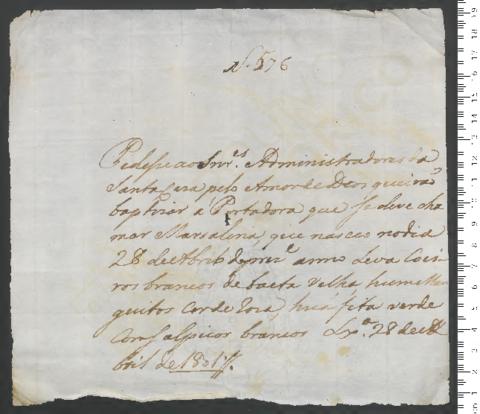 N. 576
Pedese aos Snr.es Administradores da
Santa Caza pelo Amor de Deos queirão
baptizar a Portadora que se deve cha
mar Marsalina, que nasceo no dia
28 de Abril do prez.e anno Leva Coei
ros brancos de baeta velha hum man
guitos cor de roza huã fita verde
Com salpicos brancos Lx.a 28 de A
bril de 1801